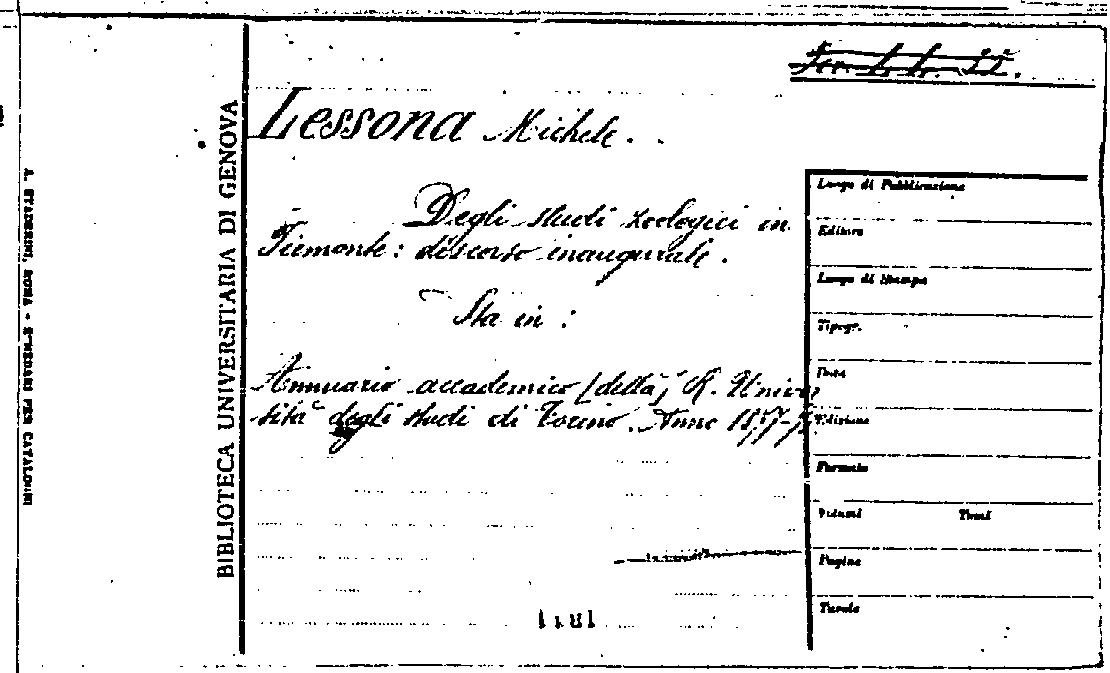 Lessona Michele.
Degli studi zoologici in
Piemonte: discorso inaugurale.
Sta in:
Annuario accademico (della) R. Univer
sità degli studi di Torino. Anno
BIBLIOTECA UNIVERSITARIA DI GENOVA
A. STADERINI, ROMA - SCHEDARI PER CATALOGHI
Luogo di Pubblicazione
Editore
Luogo di Stampa
Tipogr.
Data
Edizione
Formato
Volumi Tomi
Pagine
Tavole